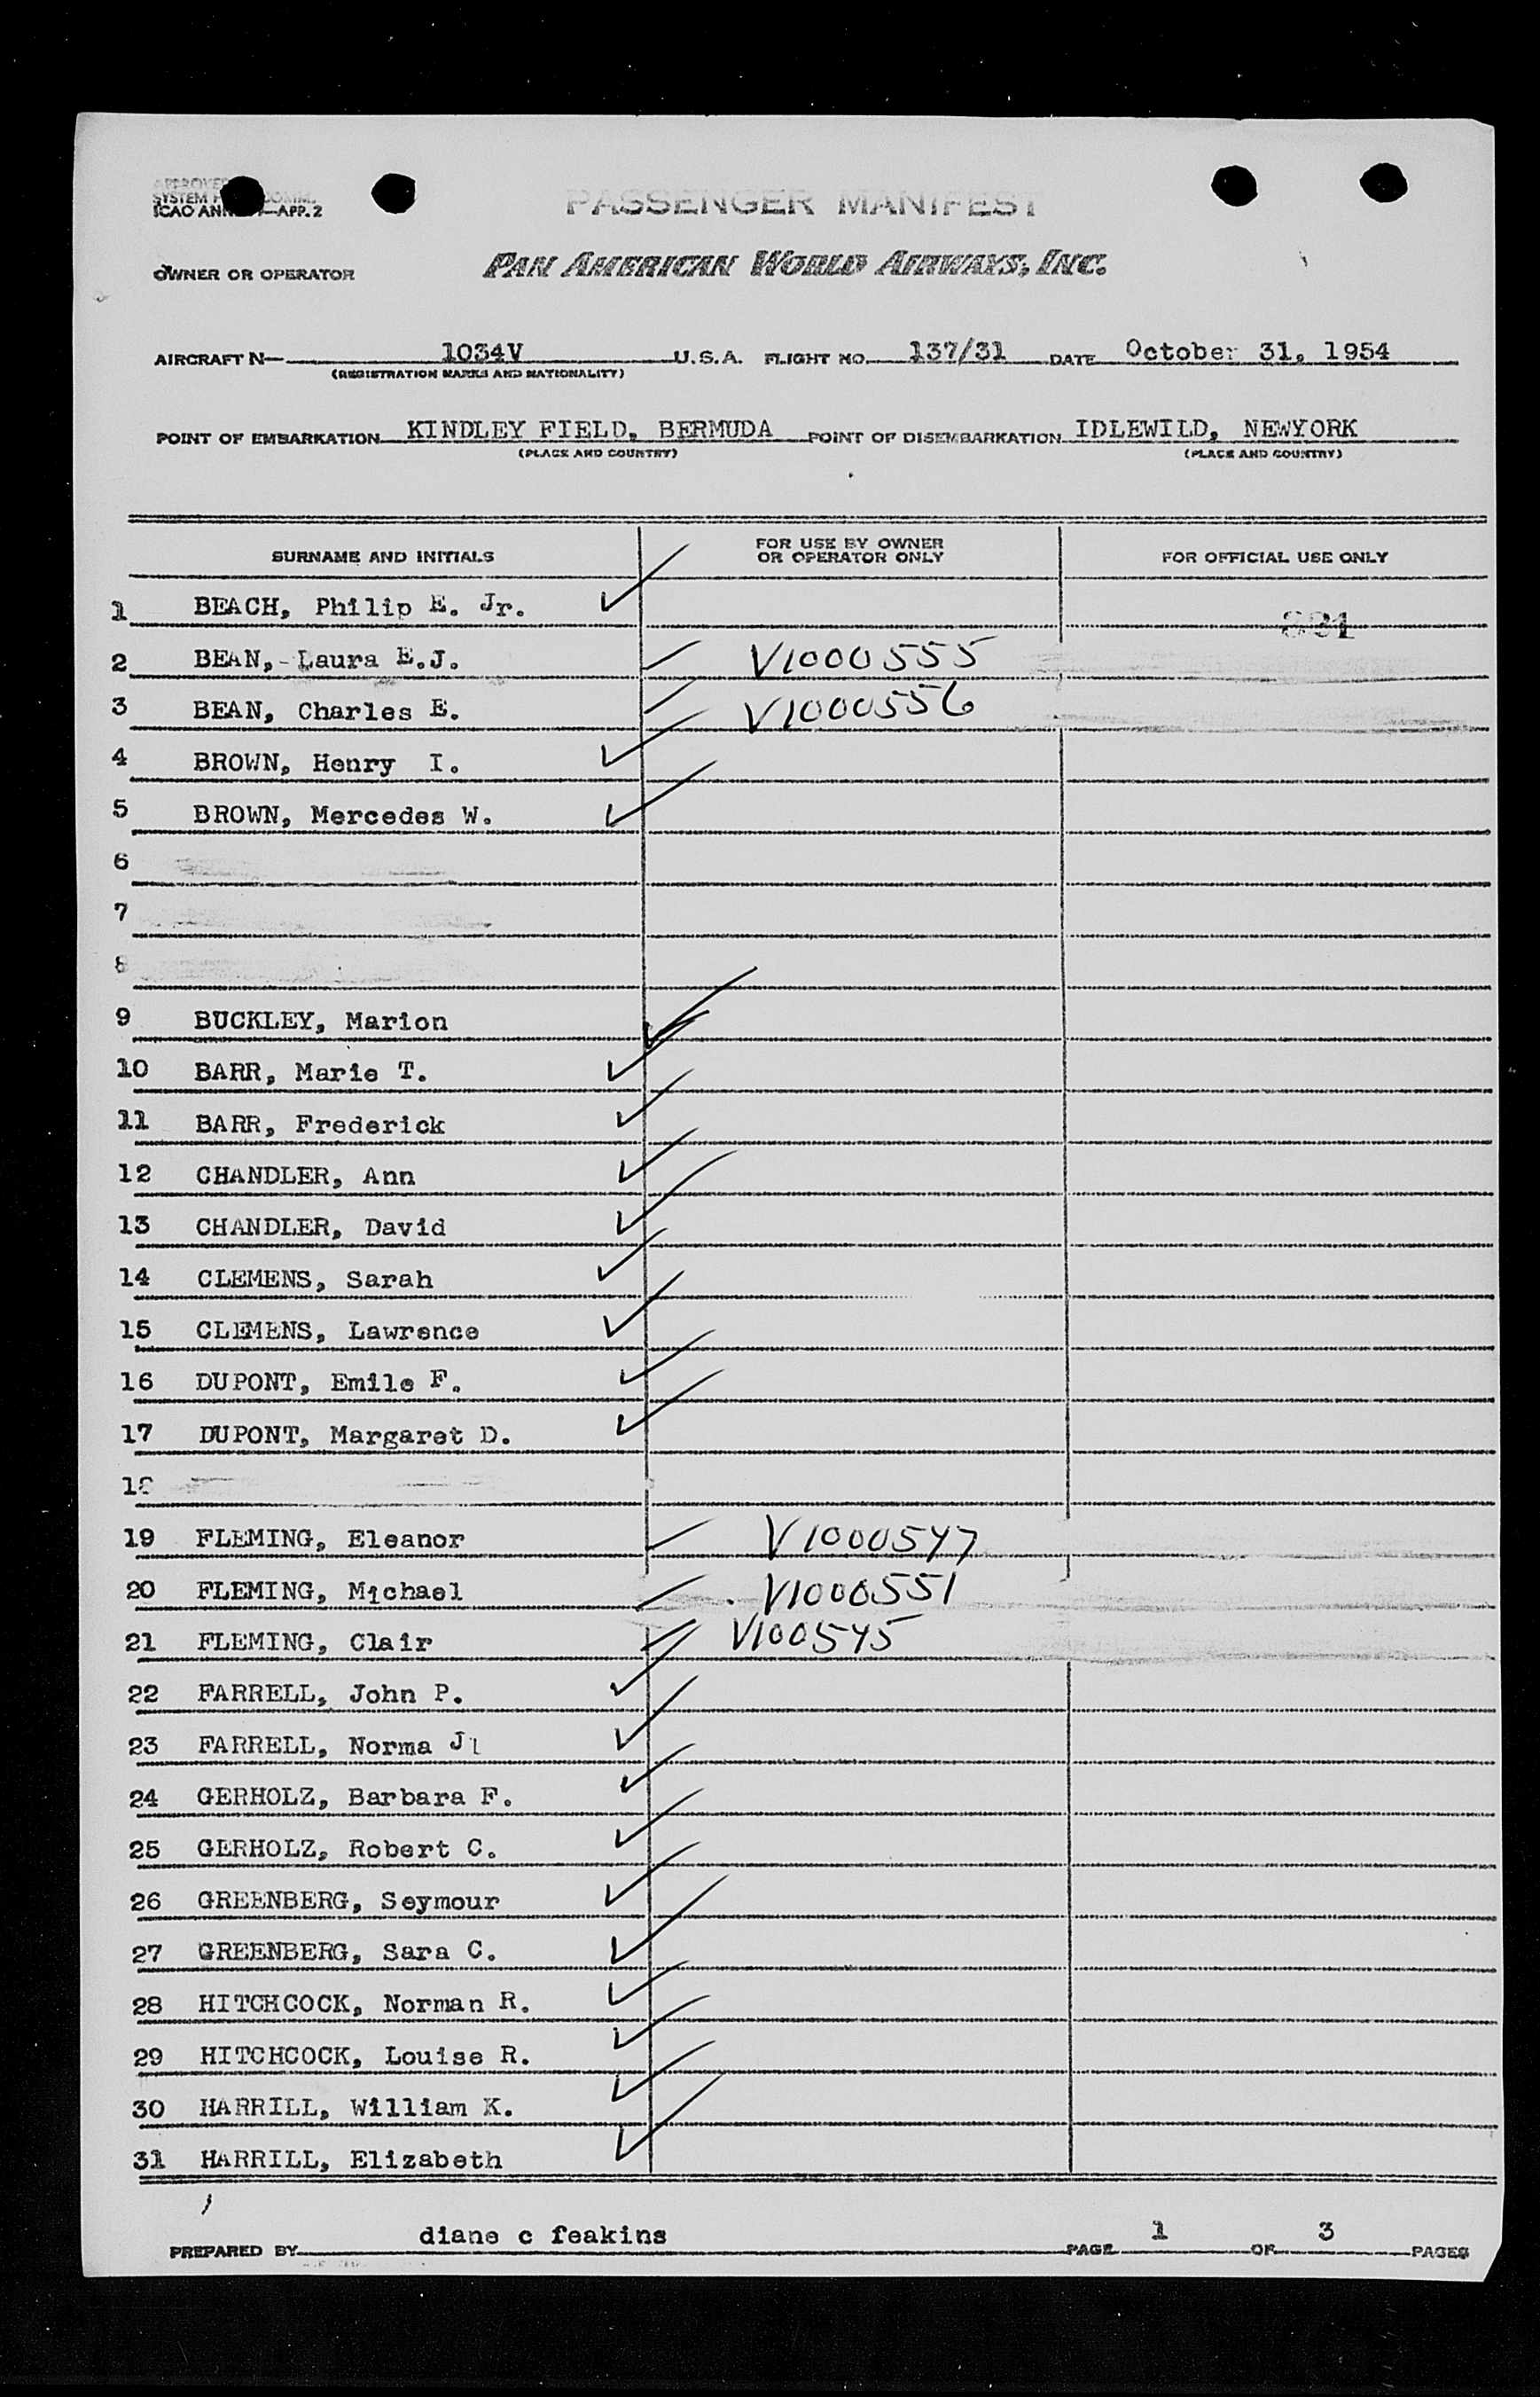 APPROVED
SYSTEM COMM.
ICAO ANN —APP. 2
PASSENGER MANIFEST
OWNER OR OPERATOR PAN AMERICAN WORLD AIRWAYS, INC.
AIRCRAFT N— 1034V U.S.A. FLIGHT NO. 137/31 DATE October 31, 1954
(REGISTRATION MARKS AND NATIONALITY)
POINT OF EMBARKATION KINDLEY FIELD, BERMUDA POINT OF DISEMBARKATION IDLEWILD, NEWYORK
(PLACE AND COUNTRY) (PLACE AND COUNTRY)
SURNAME AND INITIALS FOR USE BY OWNER OR OPERATOR ONLY FOR OFFICIAL USE ONLY
1 BEACH, Philip E. Jr. ✓
2 BEAN, Laura E.J. V1000555
3 BEAN, Charles E. V1000556
4 BROWN, Henry I. ✓
5 BROWN, Mercedes W. ✓
6
7
8
9 BUCKLEY, Marion ✓
10 BARR, Marie T. ✓
11 BARR, Frederick ✓
12 CHANDLER, Ann ✓
13 CHANDLER, David ✓
14 CLEMENS, Sarah ✓
15 CLEMENS, Lawrence ✓
16 DUPONT, Emile F. ✓
17 DUPONT, Margaret D. ✓
18
19 FLEMING, Eleanor V1000547
20 FLEMING, Michael V1000551
21 FLEMING, Clair V100545
22 FARRELL, John P. ✓
23 FARRELL, Norma J ✓
24 GERHOLZ, Barbara F. ✓
25 GERHOLZ, Robert C. ✓
26 GREENBERG, Seymour ✓
27 GREENBERG, Sara C. ✓
28 HITCHCOCK, Norman R. ✓
29 HITCHCOCK, Louise R. ✓
30 HARRILL, William K. ✓
31 HARRILL, Elizabeth ✓
PREPARED BY diane c feakins PAGE 1 OF 3 PAGES